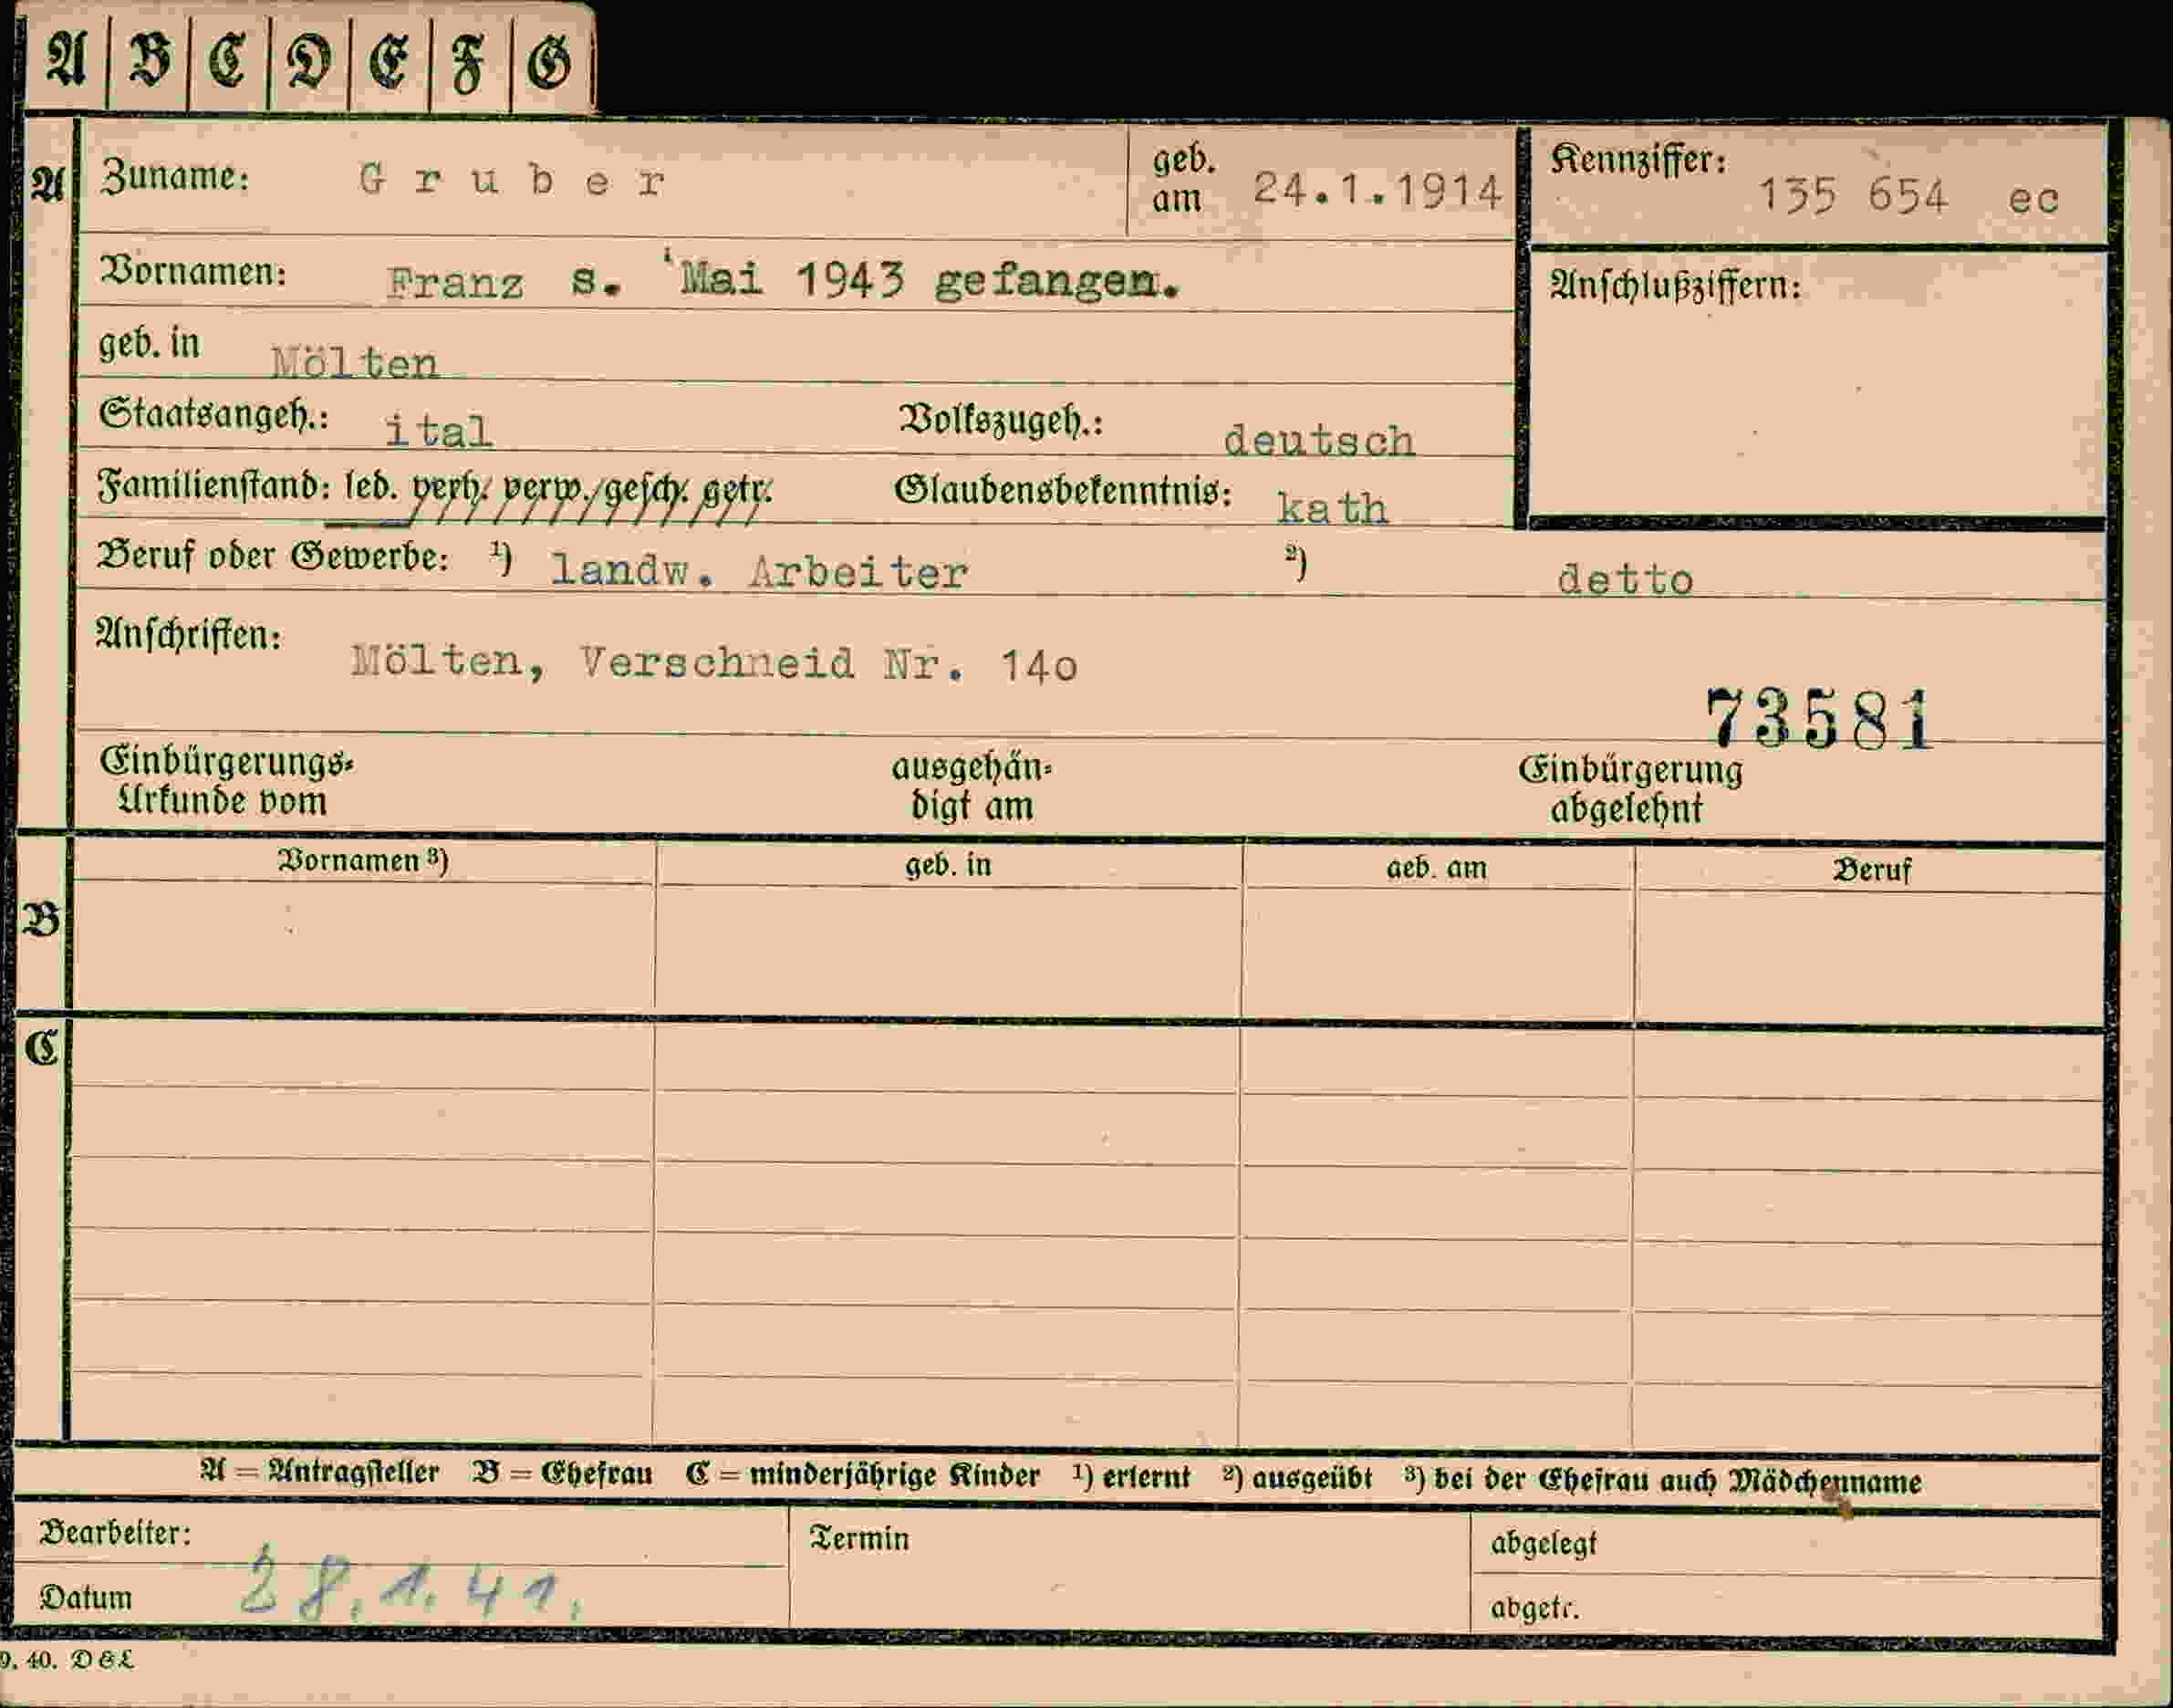 A B C D E F G
A Zuname: Gruber geb. am 24.1.1914 Kennziffer: 135 654 ec
Vornamen: Franz s. Mai 1943 gefangen. Anschlußziffern:
geb. in Mölten
Staatsangeh.: ital Volkszugeh.: deutsch
Familienstand: led. verh. verw. gesch. getr. Glaubensbekenntnis: kath
Beruf oder Gewerbe: ¹) landw. Arbeiter ²) detto
Anschriften: Mölten, Verschneid Nr. 14o
73581
Einbürgerungs- ausgehän- Einbürgerung
Urkunde vom digt am abgelehnt
Vornamen ³) geb. in geb. am Beruf
B
C
A = Antragsteller B = Ehefrau C = minderjährige Kinder ¹) erlernt ²) ausgeübt ³) bei der Ehefrau auch Mädchenname
Bearbeiter: Termin abgelegt
Datum 28.1.41. abgetr.
9. 40. D&L